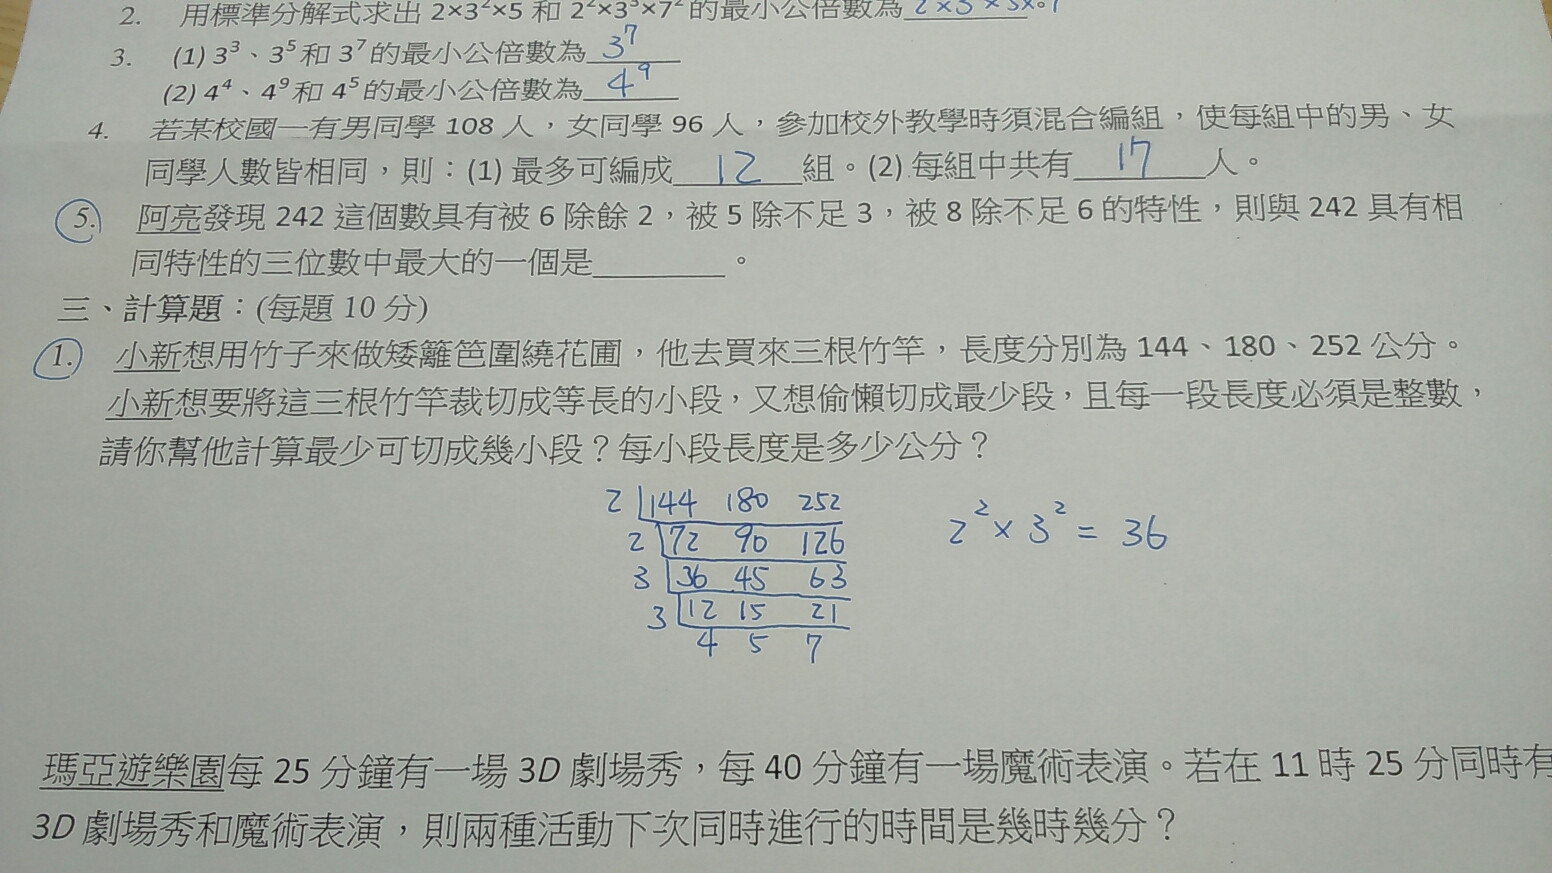 2. 用標準分解式求出 2×3²×5 和 2²×3³×7² 的最小公倍數為
3. (1) 3³、3⁵ 和 3⁷ 的最小公倍數為 3⁷
(2) 4⁴、4⁹ 和 4⁵ 的最小公倍數為 4⁹
4. 若某校國一有男同學 108 人，女同學 96 人，參加校外教學時須混合編組，使每組中的男、女
同學人數皆相同，則：(1) 最多可編成 12 組。(2) 每組中共有 17 人。
5. 阿亮發現 242 這個數具有被 6 除餘 2，被 5 除不足 3，被 8 除不足 6 的特性，則與 242 具有相
同特性的三位數中最大的一個是________。
三、計算題：(每題 10 分)
1. 小新想用竹子來做矮籬笆圍繞花圃，他去買來三根竹竿，長度分別為 144、180、252 公分。
小新想要將這三根竹竿裁切成等長的小段，又想偷懶切成最少段，且每一段長度必須是整數，
請你幫他計算最少可切成幾小段？每小段長度是多少公分？
2 144 180 252
2 72 90 126
2² × 3² = 36
3 36 45 63
3 12 15 21
4 5 7
瑪亞遊樂園每 25 分鐘有一場 3D 劇場秀，每 40 分鐘有一場魔術表演。若在 11 時 25 分同時有
3D 劇場秀和魔術表演，則兩種活動下次同時進行的時間是幾時幾分？